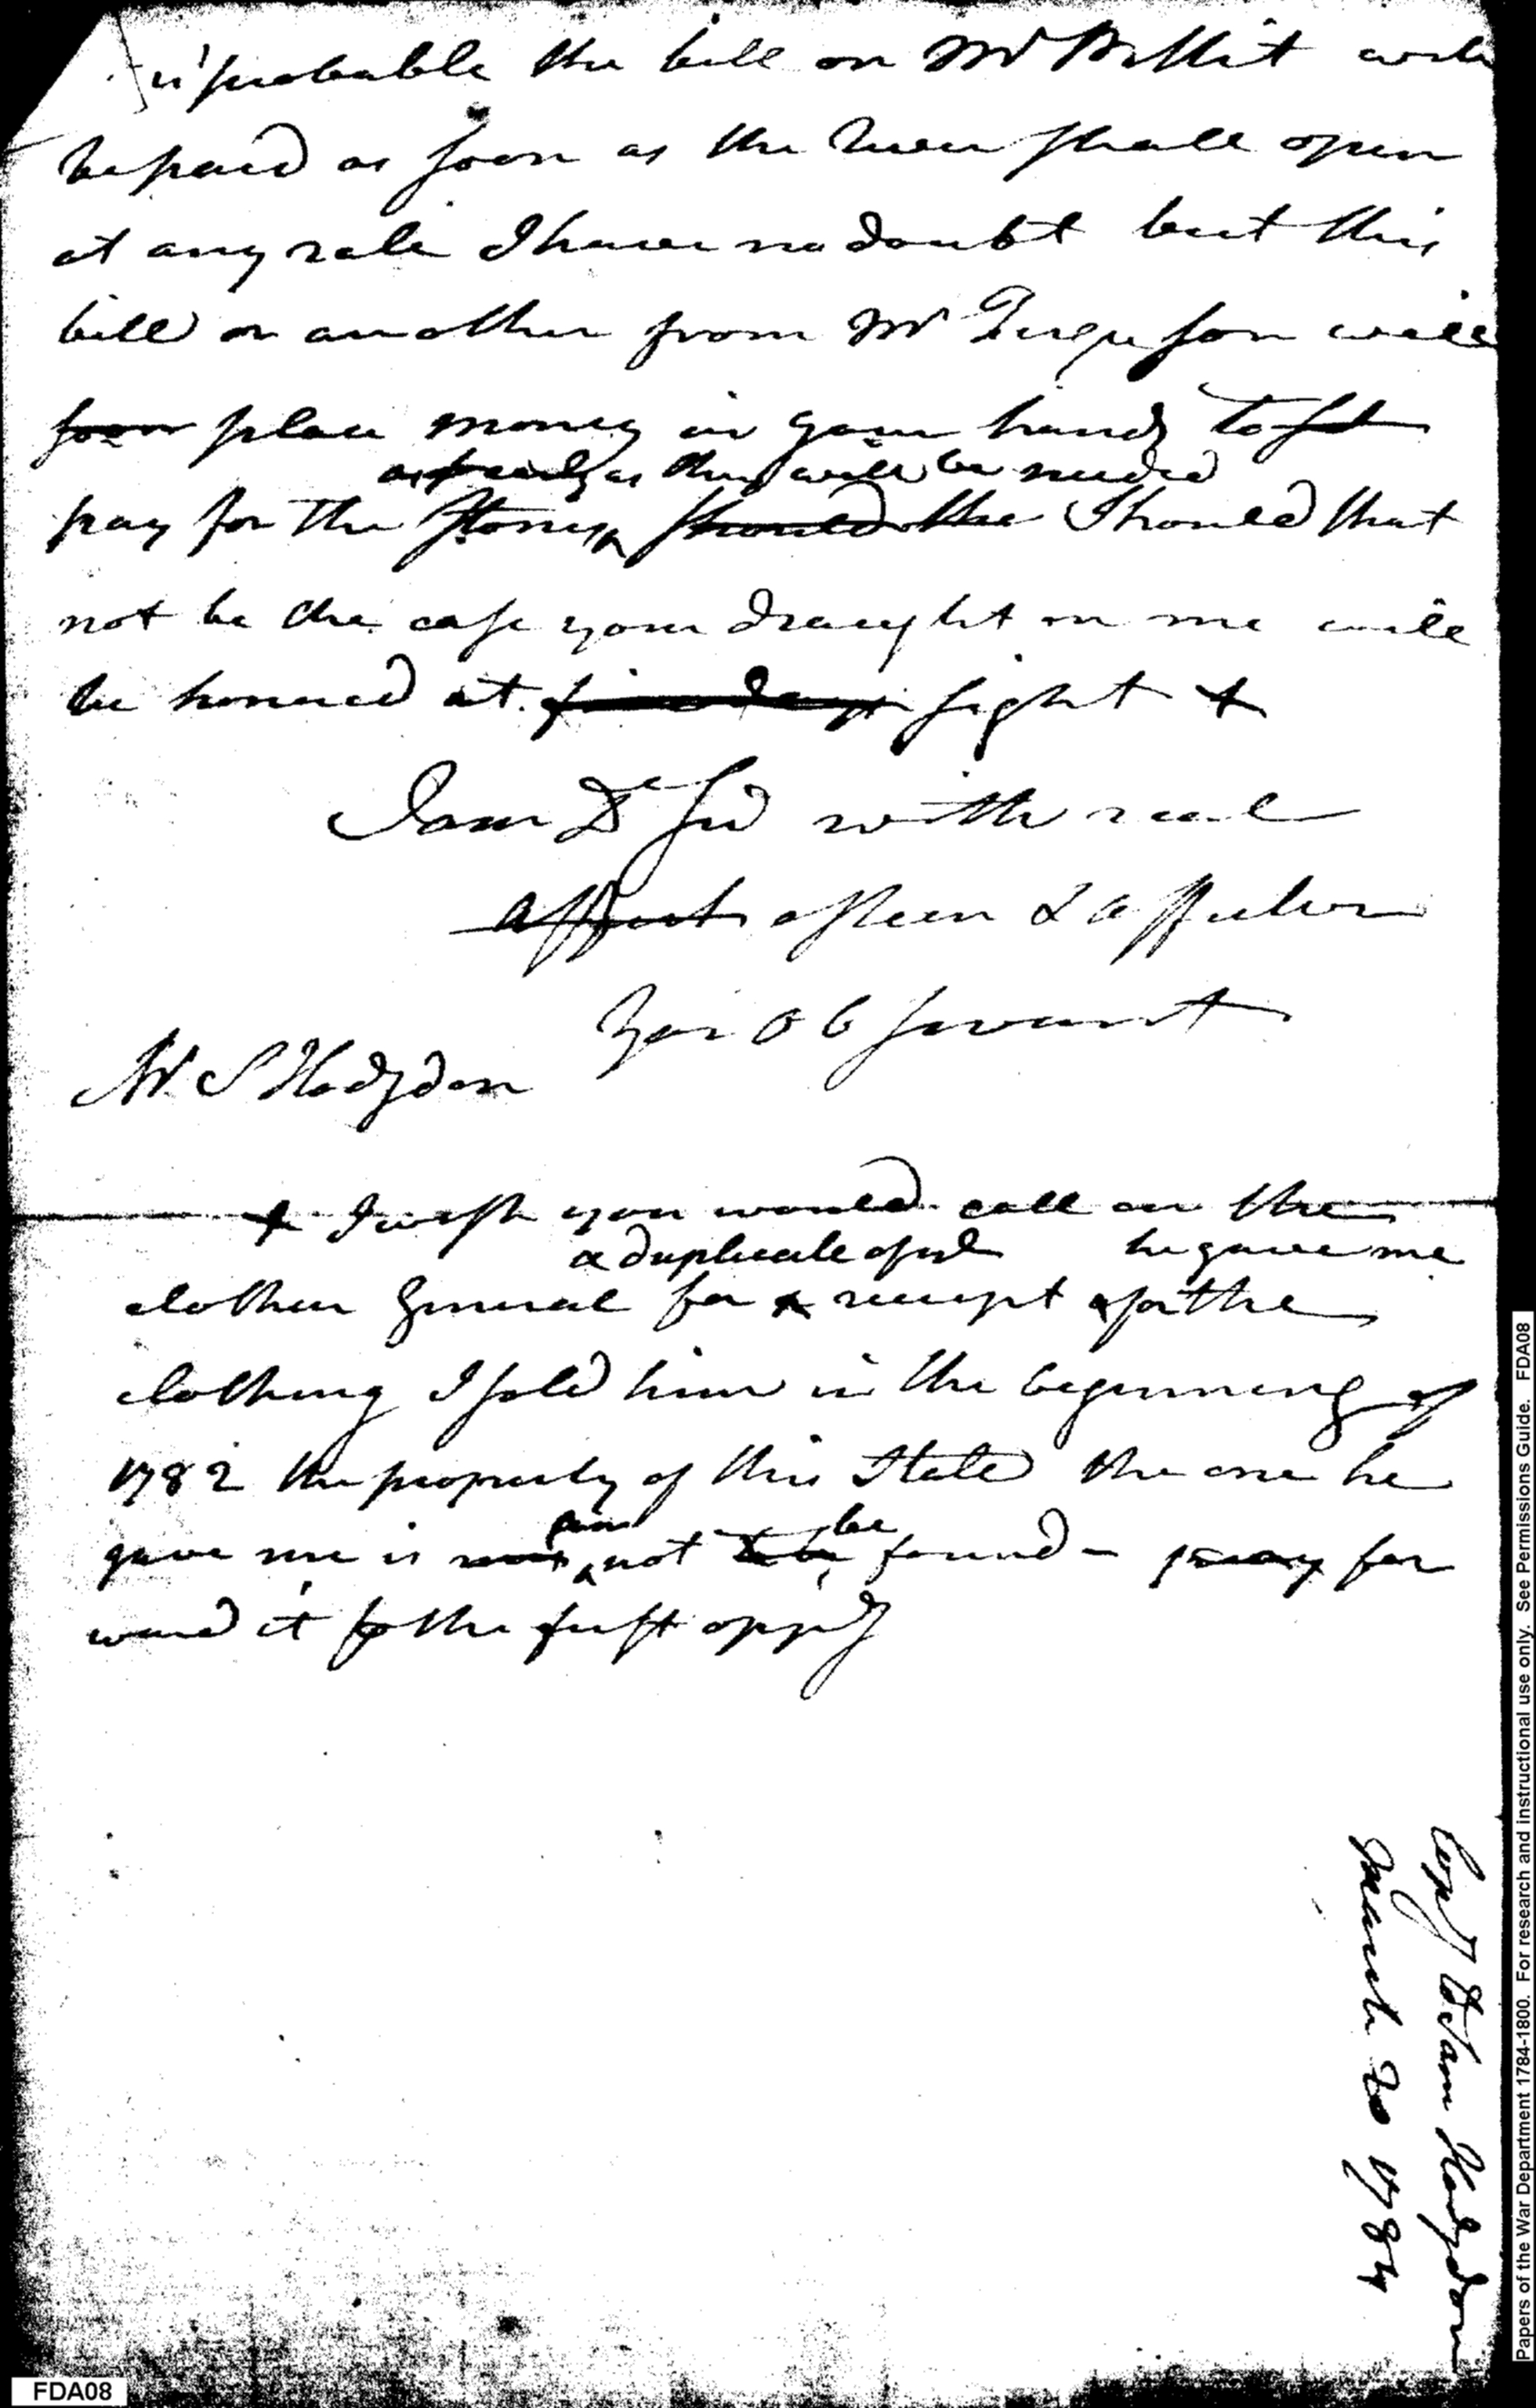 is probable the bill on Mr Pettit will
be paid as soon as the River shall open
at any rate I have no doubt but this
bill or another from Mr Ferguson will
soon place money in your hands to
as they will be needed
pay for the Stores should the Should that
not be the case your draught on me will
be honored at five days sight +
I am Dr Sir with real
affect esteem & affection
Your Ob Servant
Mr. S Hodgdon
+ I wish you would call on the
a duplicate of the he gave me
clothier General for a receipt for the
clothing I sold him in the beginning of
1782 the property of this State the one he
can be
gave me is not to be found - pray for
ward it by the first oppy
Copy to Sam Hodgdon
March 20 1784
Papers of the War Department 1784-1800. For research and instructional use only. See Permissions Guide. FDA08
FDA08